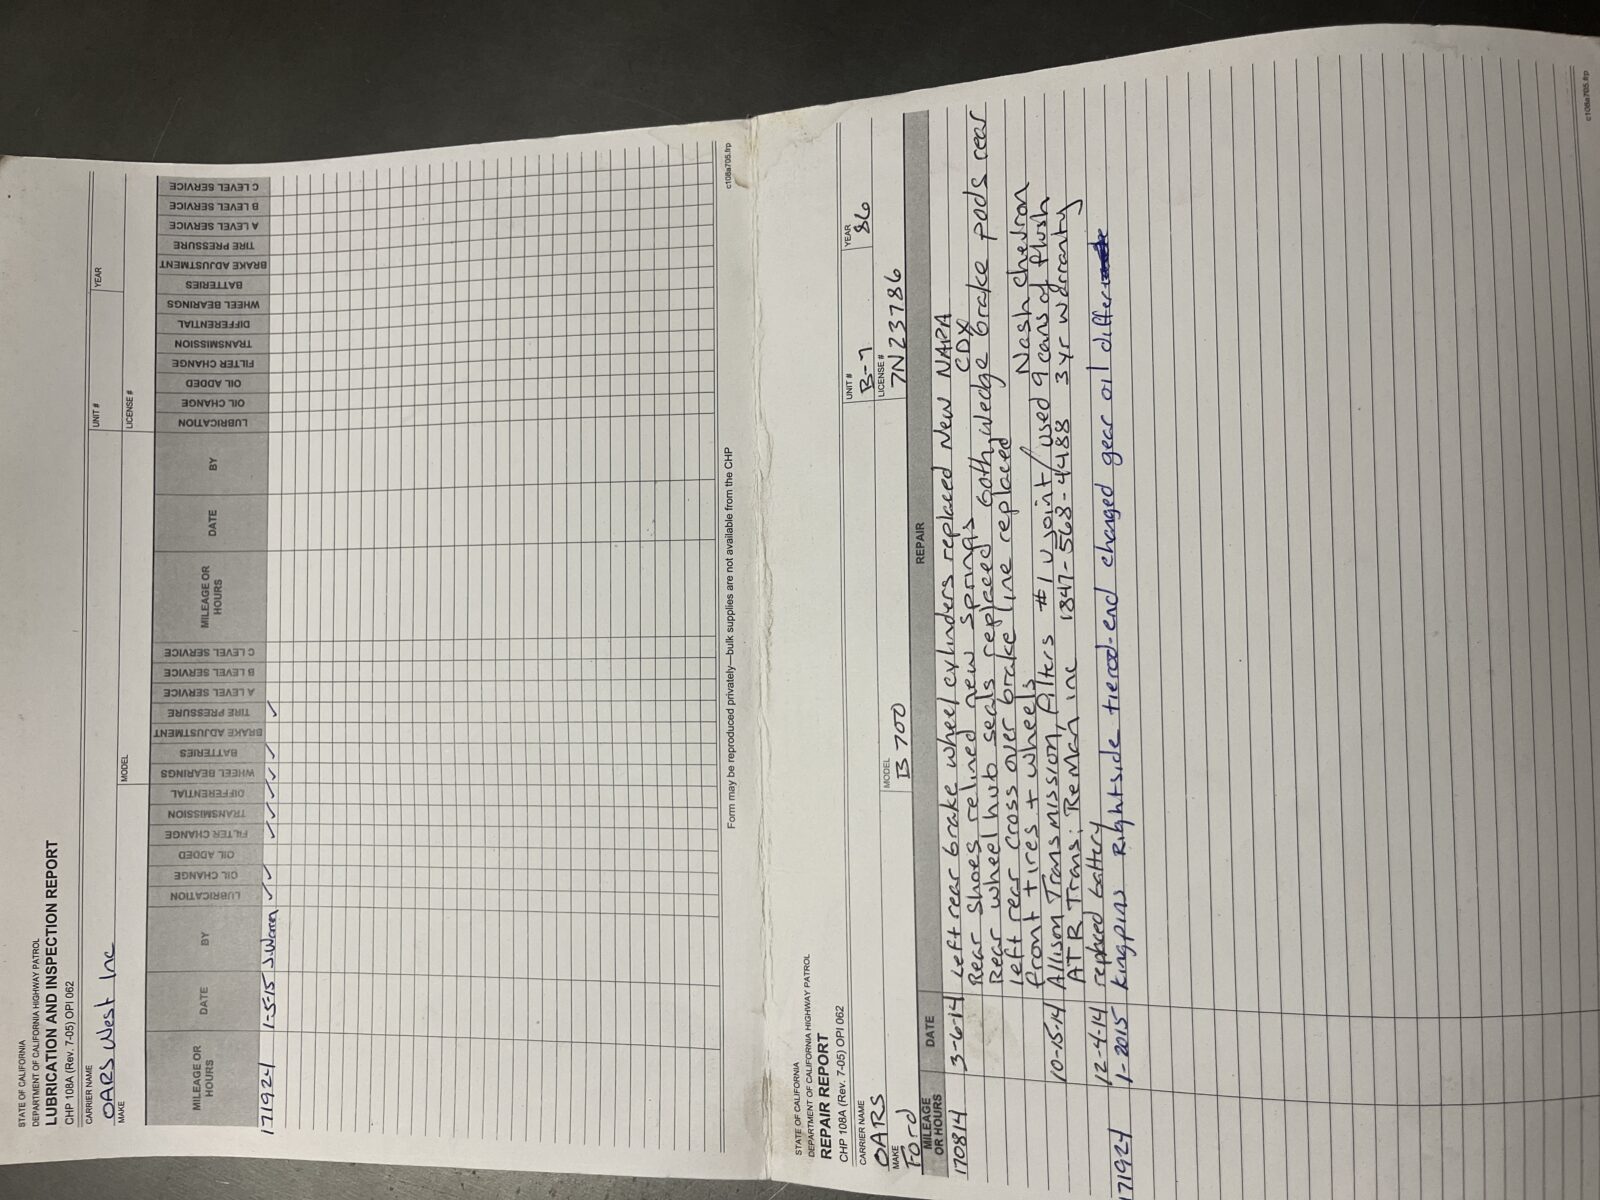 STATE OF CALIFORNIA
DEPARTMENT OF CALIFORNIA HIGHWAY PATROL
LUBRICATION AND INSPECTION REPORT
CHP 108A (Rev. 7-05) OPI 062
CARRIER NAME UNIT # YEAR
OARS West Inc
MAKE MODEL LICENSE #
MILEAGE OR HOURS DATE BY LUBRICATION OIL CHANGE OIL ADDED FILTER CHANGE TRANSMISSION DIFFERENTIAL WHEEL BEARINGS BATTERIES BRAKE ADJUSTMENT TIRE PRESSURE A LEVEL SERVICE B LEVEL SERVICE C LEVEL SERVICE MILEAGE OR HOURS DATE BY LUBRICATION OIL CHANGE OIL ADDED FILTER CHANGE TRANSMISSION DIFFERENTIAL WHEEL BEARINGS BATTERIES BRAKE ADJUSTMENT TIRE PRESSURE A LEVEL SERVICE B LEVEL SERVICE C LEVEL SERVICE
171924 1-5-15 ✓ ✓ ✓ ✓ ✓ ✓ ✓ ✓
Form may be reproduced privately—bulk supplies are not available from the CHP
c108a705.frp
STATE OF CALIFORNIA
DEPARTMENT OF CALIFORNIA HIGHWAY PATROL
REPAIR REPORT
CHP 108A (Rev. 7-05) OPI 062
CARRIER NAME UNIT # YEAR
OARS B-7 86
MAKE MODEL LICENSE #
Ford B 700 7N23786
MILEAGE OR HOURS DATE REPAIR
170814 3-6-14 Left rear brake wheel cylinders replaced New NAPA
Rear shoes relined new springs CDX
Rear wheel hub seals replaced both, wedge brake pods rear
left rear cross over brake line replaced
front tires + wheels Nash Chevron
10-15-14 Allison Transmission, filters #1 U joint/used 9 cans of flush
ATR Trans; ReMan inc 1847-568-4488 3 yr warranty
12-4-14 replaced battery
171924 1-2015 kingpins Rightside tierod-end changed gear oil differ
c108a705.frp